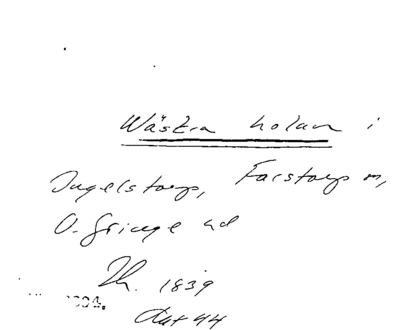 Wästra holan i
Ingelstorps, Farstorps m,
V. Göinge hd
Th. 1839
dat 44